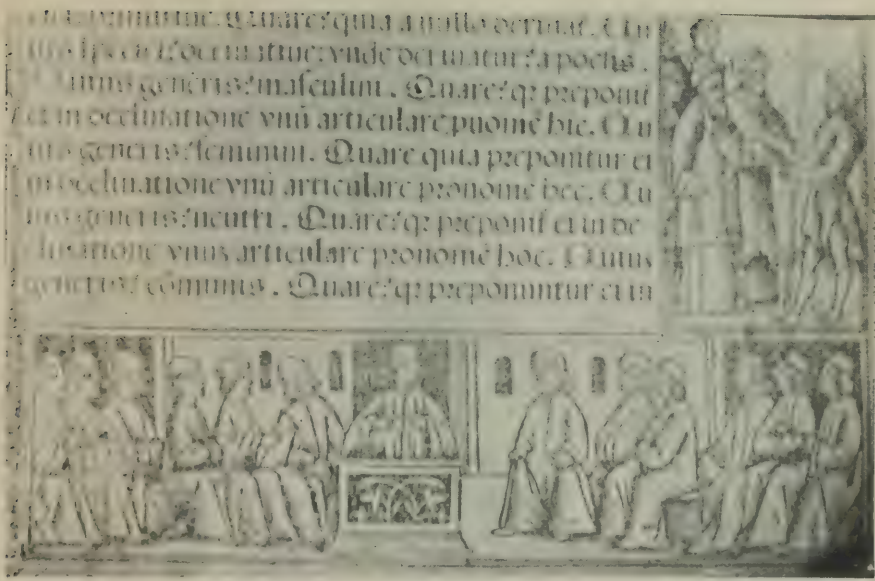 primitiue. Quare? quia a nullo deriuat. Cu
ius speciei? deriuatiue: vnde deriuatur? a poesis.
Cuius generis? masculini. Quare? q: preponit
ei in declinatione vnũ articulare pnomẽ hic. Cu
ius generis? feminini. Quare quia preponitur ei
in declinatione vnũ articulare pronomẽ hec. Cu
ius generis? neutri. Quare? q: preponit ei in de
clinatione vnus articulare pronomẽ hoc. Cuius
generis? cõmunis. Quare? q: preponuntur ei in